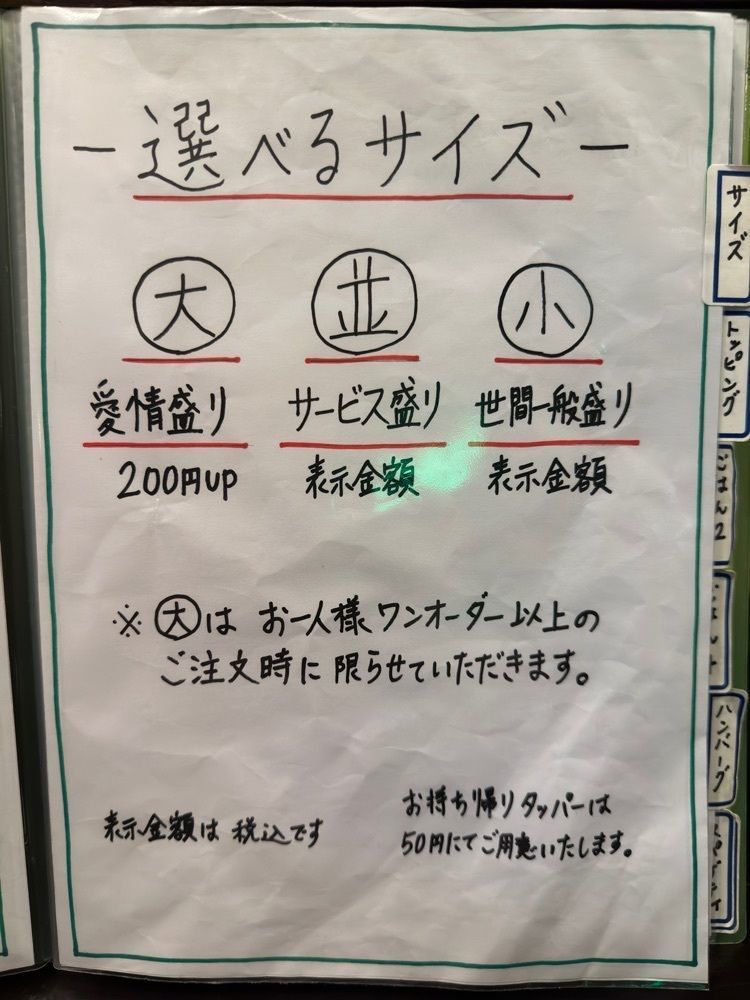 －選べるサイズ－
大 並 小
愛情盛り サービス盛り 世間一般盛り
200円up 表示金額 表示金額
※大はお一人様ワンオーダー以上の
ご注文時に限らせていただきます。
表示金額は税込です
お持ち帰りタッパーは
50円にてご用意いたします。
サイズ
トッピング
ごはん2
ハンバーグ
スパゲティ